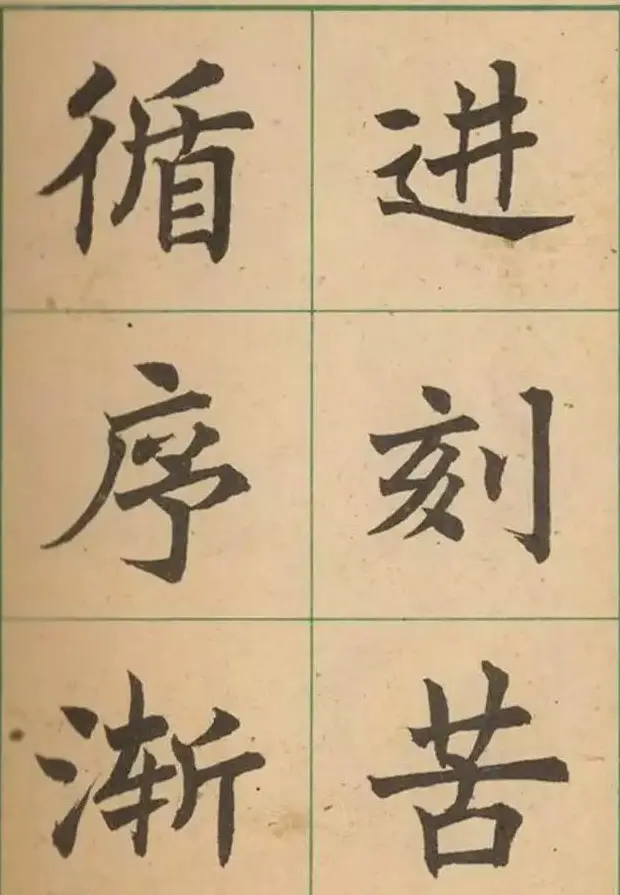 循序渐
进刻苦